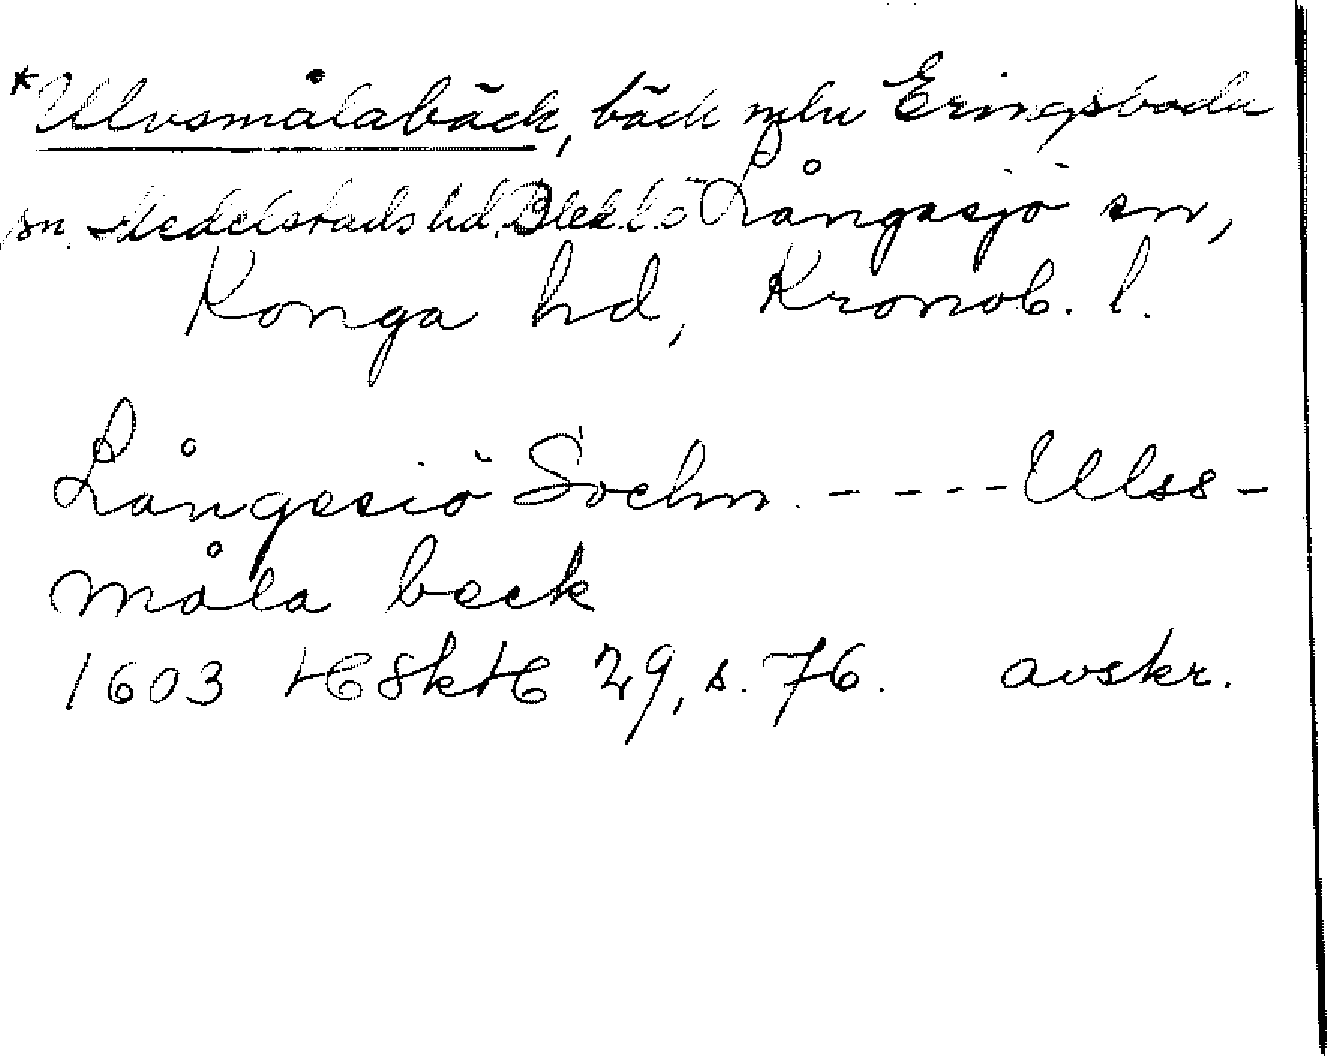 *Ulvsmålabäck, bäck mln Eringsboda
sn. Medelstads hd. Blek. l. o Långasjö sn,
Konga hd, Kronob. l.
Långesiö Sochn. ---- Ulss-
måla beck
1603 HC8kHC 29, s. 76. avskr.